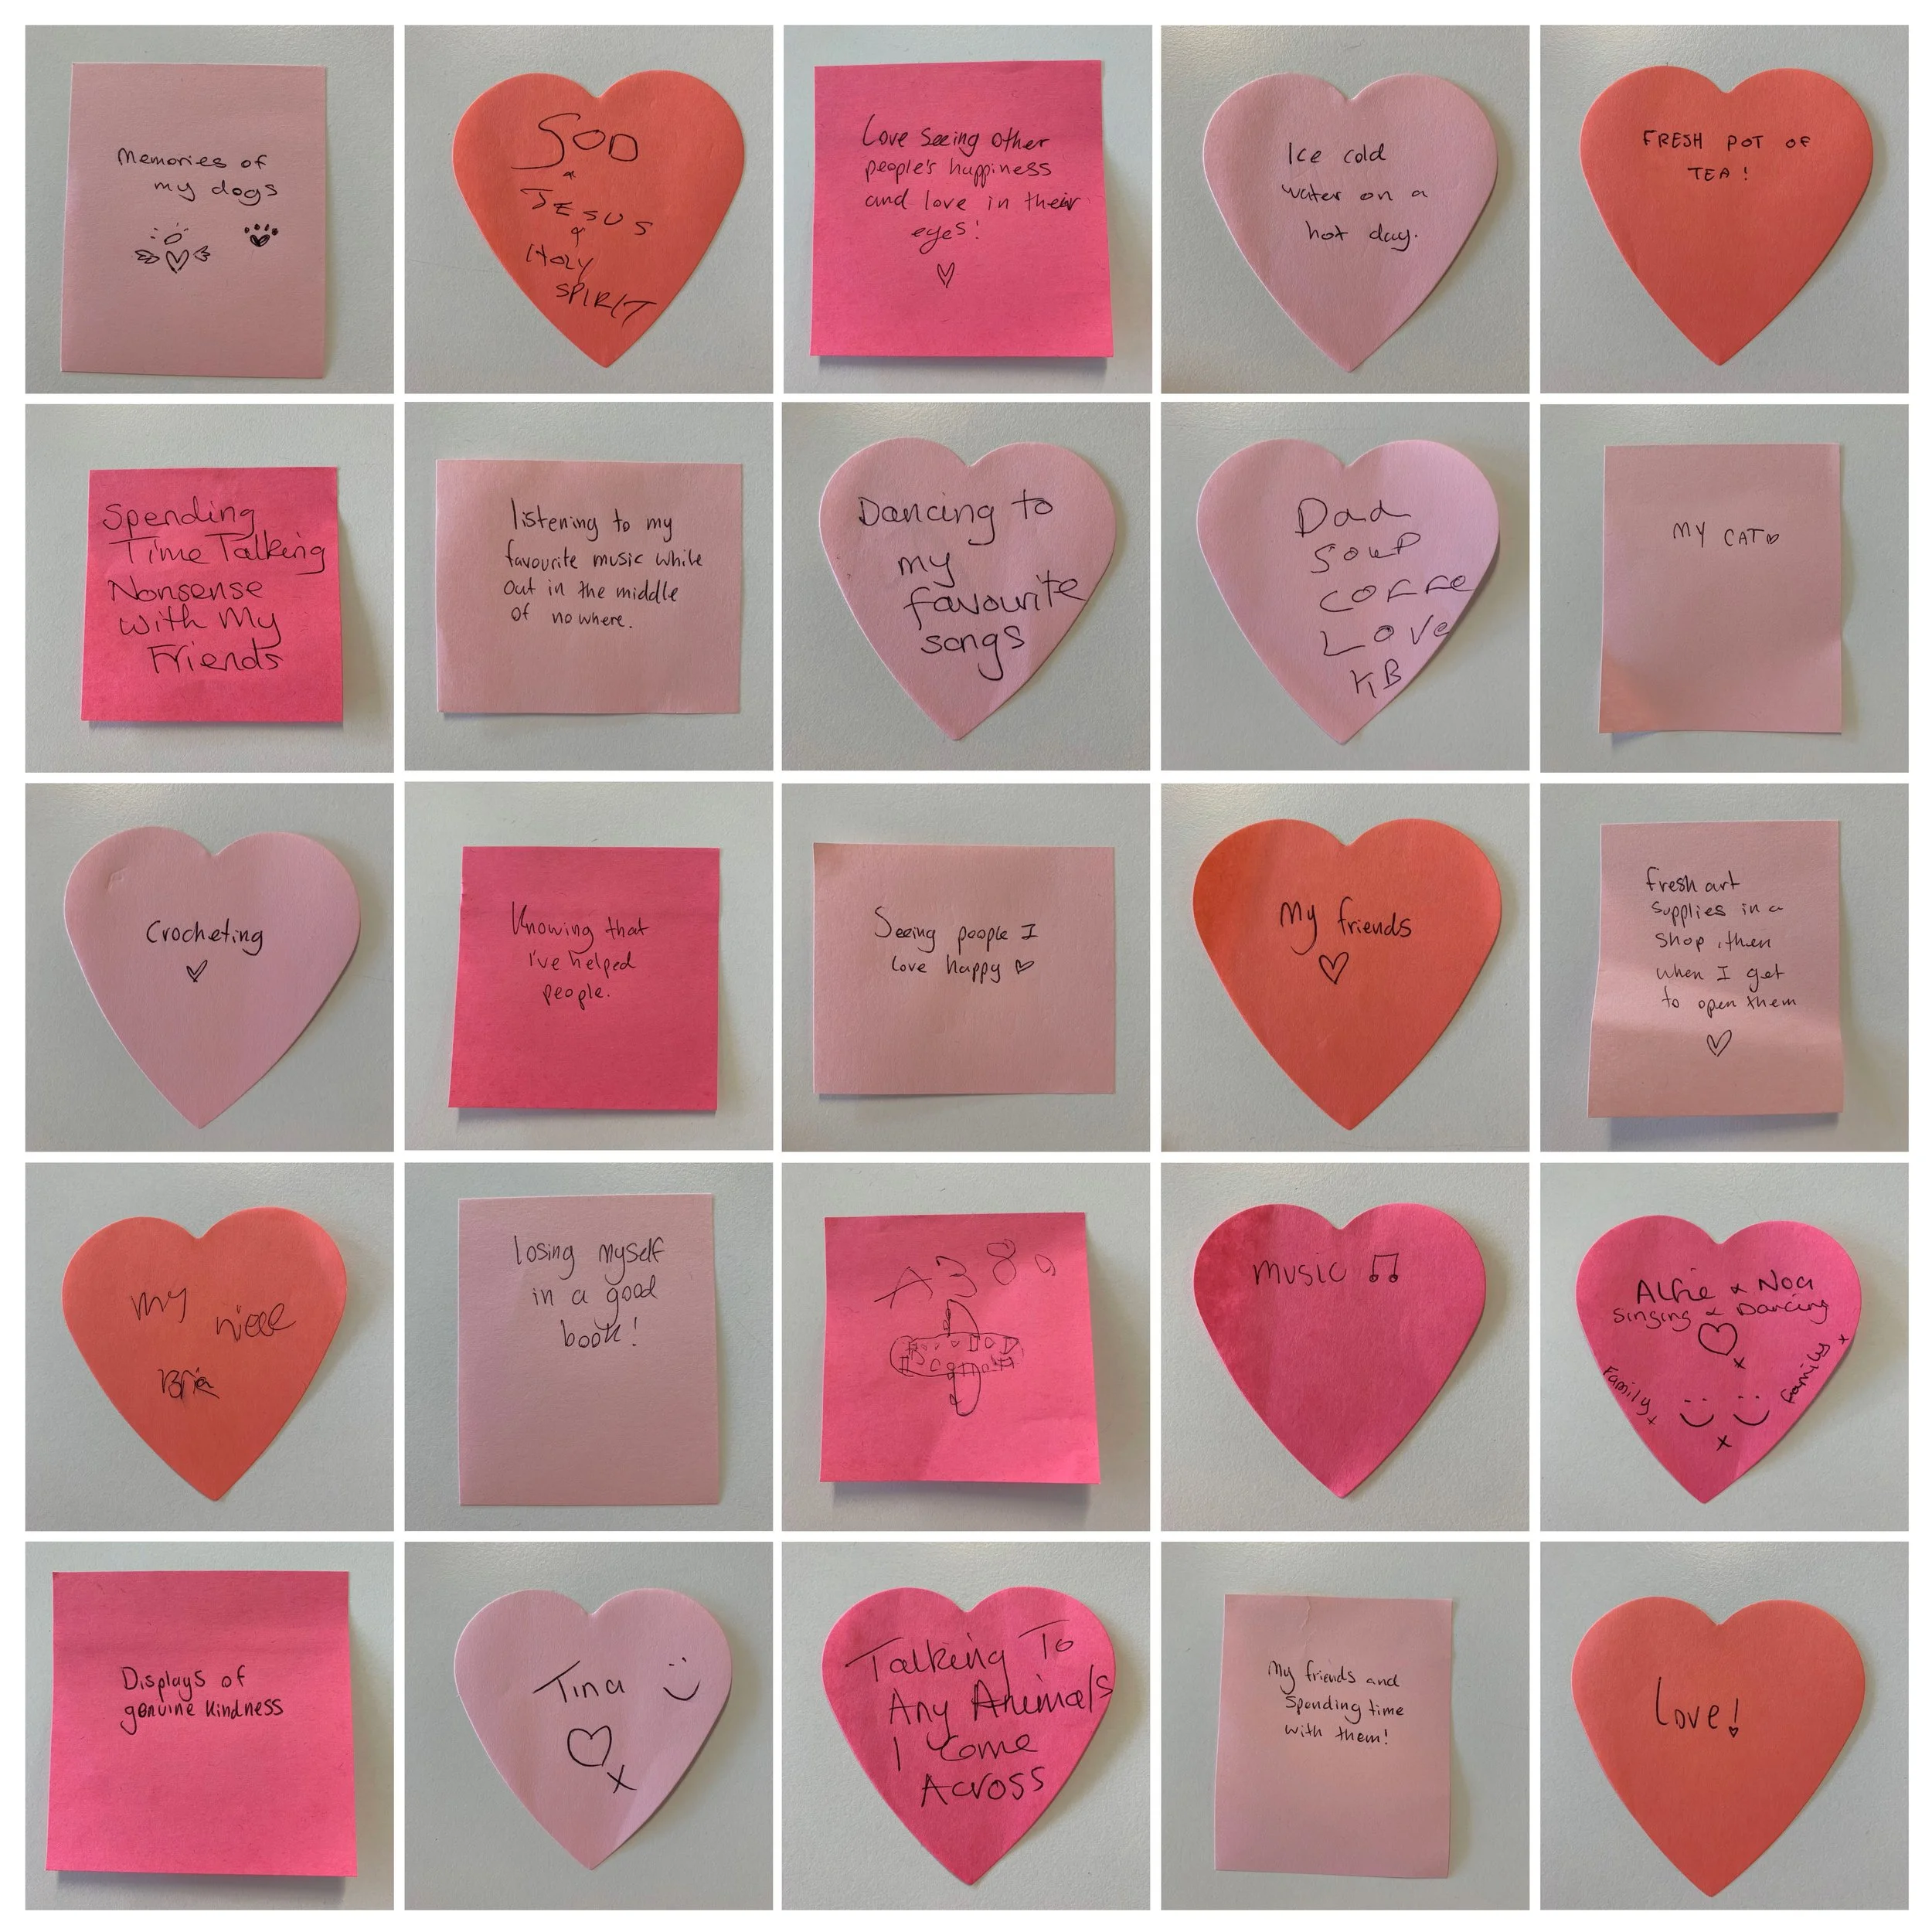 Memories of
my dogs
GOD
&
JESUS
&
HOLY
SPIRIT
Love seeing other
people's happiness
and love in their
eyes!
Ice cold
water on a
hot day.
FRESH POT OF
TEA!
Spending
Time Talking
Nonsense
with My
Friends
listening to my
favourite music while
out in the middle
of nowhere.
Dancing to
my
favourite
songs
Dad
SOUP
COFFE
LOVE
KB
MY CAT
Crocheting
Knowing that
I've helped
people.
Seeing people I
love happy
My friends
fresh art
supplies in a
shop, then
when I get
to open them
my niece
losing myself
in a good
book!
A380
music
Alfie & Noa
Singing & Dancing
x
Family x
Family x
x
Displays of
genuine kindness
Tina
x
Talking To
Any Animals
I Come
Across
My friends and
spending time
with them!
Love!